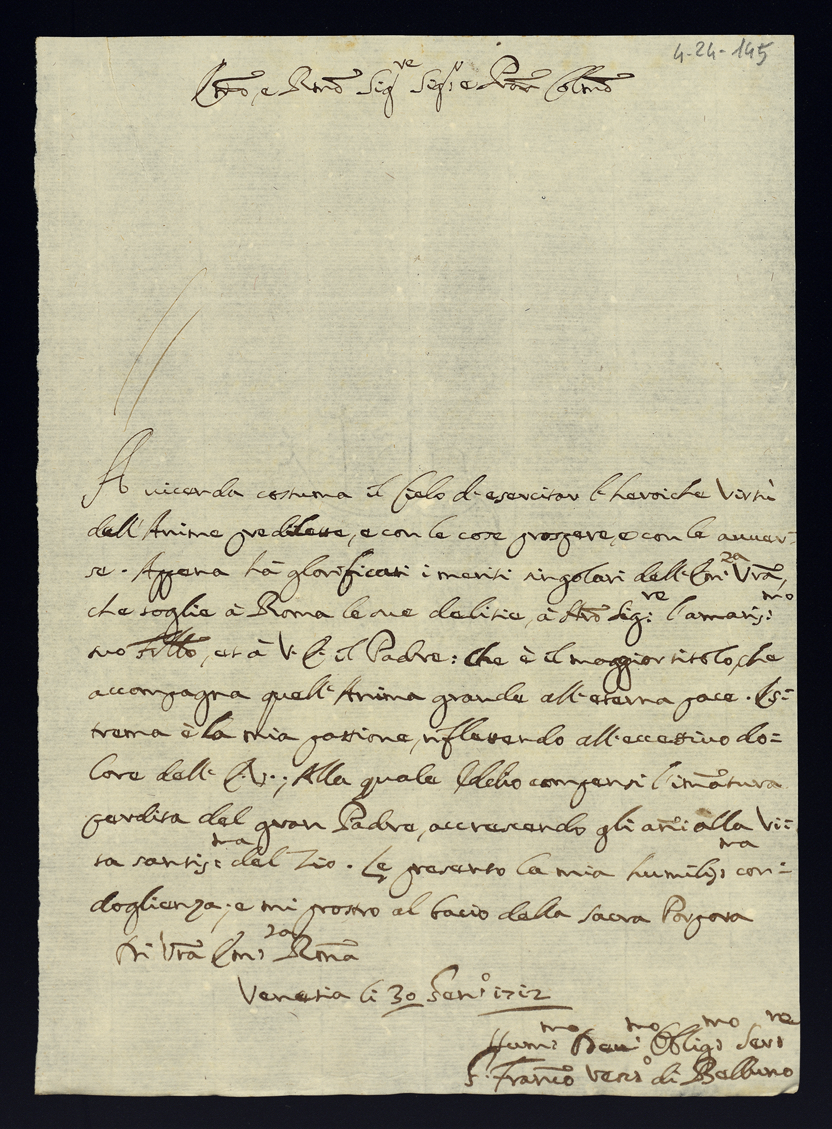 4-24-145
Emō, e Rmō Sig.re Sig.r e Pron Colmō
A vicenda costuma il Cielo di esercitar l'heroiche Virtù
dell'Anime predilette, e con le cose prospere, e con le auuer-
se. Appena hà glorificati i meriti singolari dell'Em.za Vrā,
che toglie à Roma le sue delitie, à Sig.re l'amatis.mo
suo et à V. E. il Padre: che è il maggior titolo, che
accompagna quell'Anima grande all'eterna pace. Es-
trema è la mia passione, riflettendo all'eccessiuo do=
lore dell' E. V.; Alla quale Iddio compensi l'imātura
perdita del gran Padre, accrescendo gli añi alla Vi=
ta santis.ma del Zio. Le presento la mia humilis.ma con=
doglienza; e mi prostro al bacio della Sacra Porpora
Di Vrā Em.za Romā
Venetia li 30 Gen.o 1712
Hum.mo Deu.mo Oblig.mo Ser.re
F. Franc.o Vesc.o di Belluno